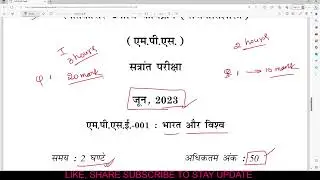 ( एम.पी.एस. )
I
3 hours
2 hours
सत्रांत परीक्षा
φ : 20 mark
जून, 2023
10 mark
एम.पी.एस.ई.-001 : भारत और विश्व
समय : 2 घण्टे
अधिकतम अंक : 50
LIKE, SHARE SUBSCRIBE TO STAY UPDATE